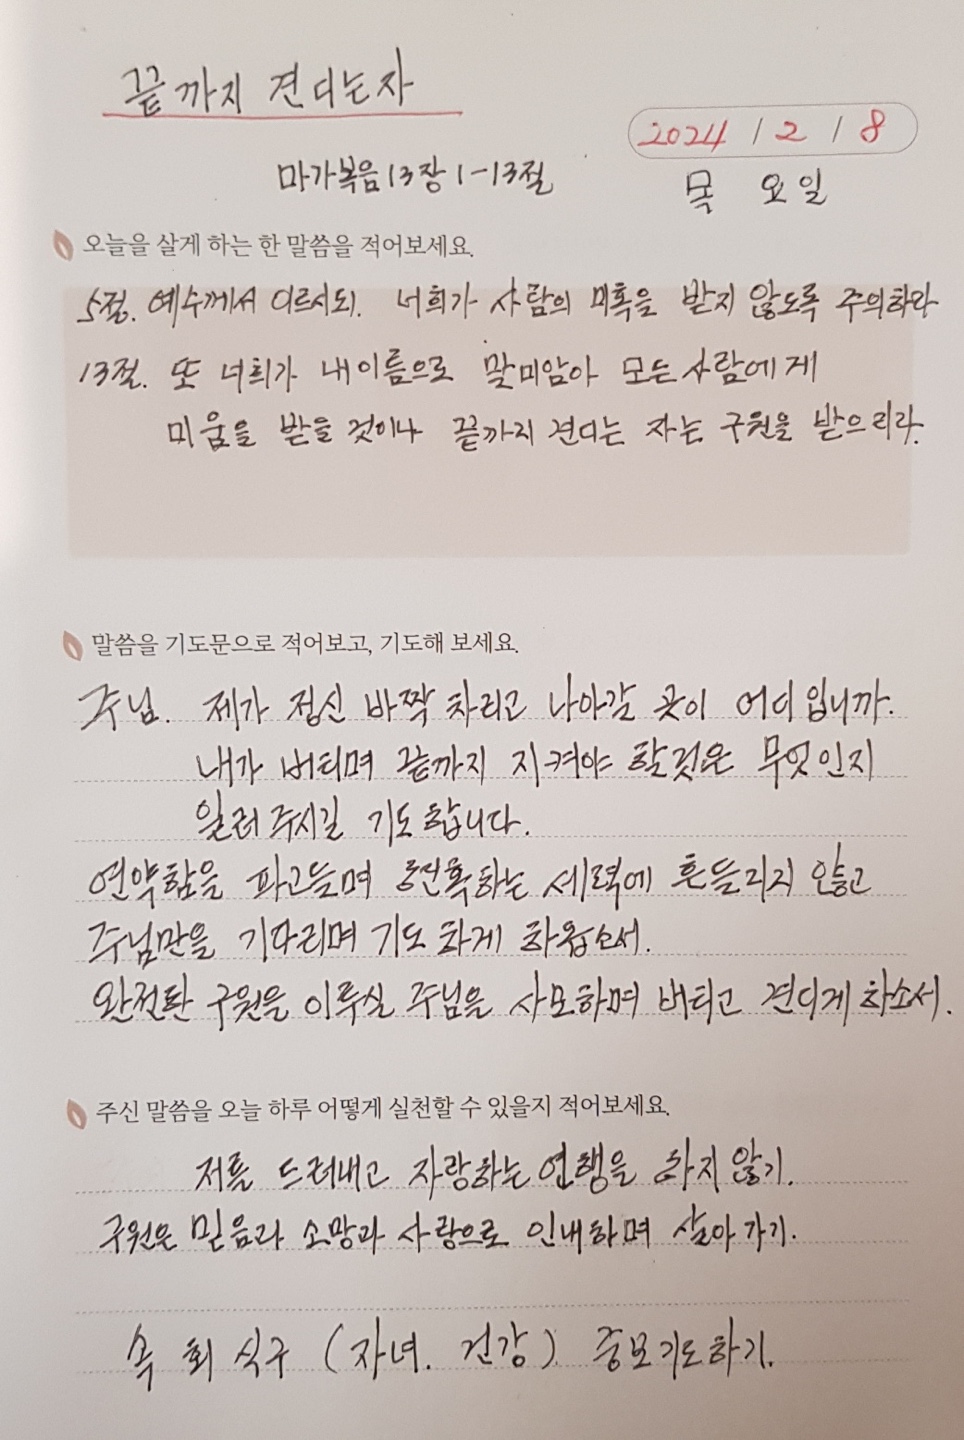 끝까지 견디는 자
2024 / 2 / 8
마가복음 13장 1-13절
목 요일
오늘을 살게 하는 한 말씀을 적어보세요.
5절. 예수께서 이르시되. 너희가 사람의 미혹을 받지 않도록 주의하라
13절. 또 너희가 내 이름으로 말미암아 모든 사람에게
미움을 받을 것이나 끝까지 견디는 자는 구원을 받으리라.
말씀을 기도문으로 적어보고, 기도해 보세요.
주님. 제가 정신 바짝 차리고 나아갈 곳이 어디입니까.
내가 버티며 끝까지 지켜야 할것은 무엇인지
일러 주시길 기도 합니다.
연약함을 파고들며 하는 세력에 흔들리지 않고
주님만을 기다리며 기도 하게 하옵소서.
완전한 구원을 이루실 주님을 사모하며 버티고 견디게 하소서.
주신 말씀을 오늘 하루 어떻게 실천할 수 있을지 적어보세요.
저를 드러내고 자랑하는 언행을 하지 않기.
구원은 믿음과 소망과 사랑으로 인내하며 살아 가기.
속회 식구 (자녀. 건강) 중보기도하기.